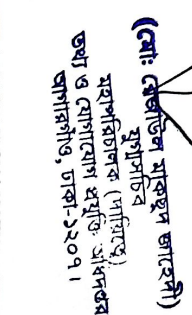 (মোঃ রেজাউল মাকছুদ জাহেদী)
যুগ্মসচিব
মহাপরিচালক (দায়িত্বে)
তথ্য ও যোগাযোগ প্রযুক্তি অধিদপ্তর
আগারগাঁও, ঢাকা-১২০৭।